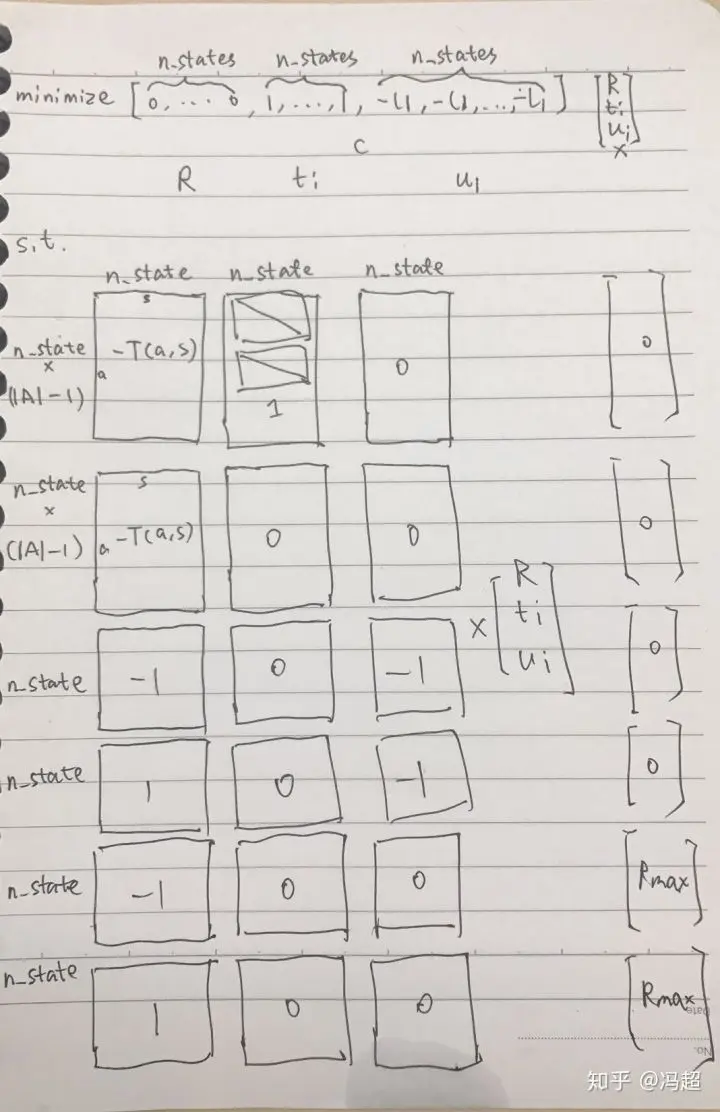 n_states n_states n_states
minimize [0, ... 0, 1, ..., 1, -l1, -l1, ..., -l1] [R ti ui]
x
c
R ti u1
s.t.
n_state n_state n_state
s
n_state × (|A|-1) a -T(a,s) 1 0 0
s
n_state × (|A|-1) a -T(a,s) 0 0 0
× [R ti ui]
n_state -1 0 -1 0
n_state 1 0 -1 0
n_state -1 0 0 Rmax
n_state 1 0 0 Rmax
Date
No.
知乎 @冯超